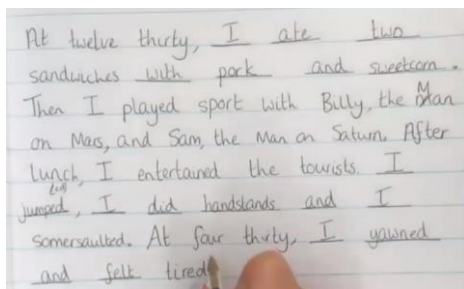 At twelve thirty, I ate two
sandwiches with pork and sweetcorn.
Then I played sport with Billy, the Man
on Mars, and Sam, the Man on Saturn. After
lunch, I entertained the tourists. I
jumped, I did handstands and I
somersaulted. At four thirty, I yawned
and felt tired